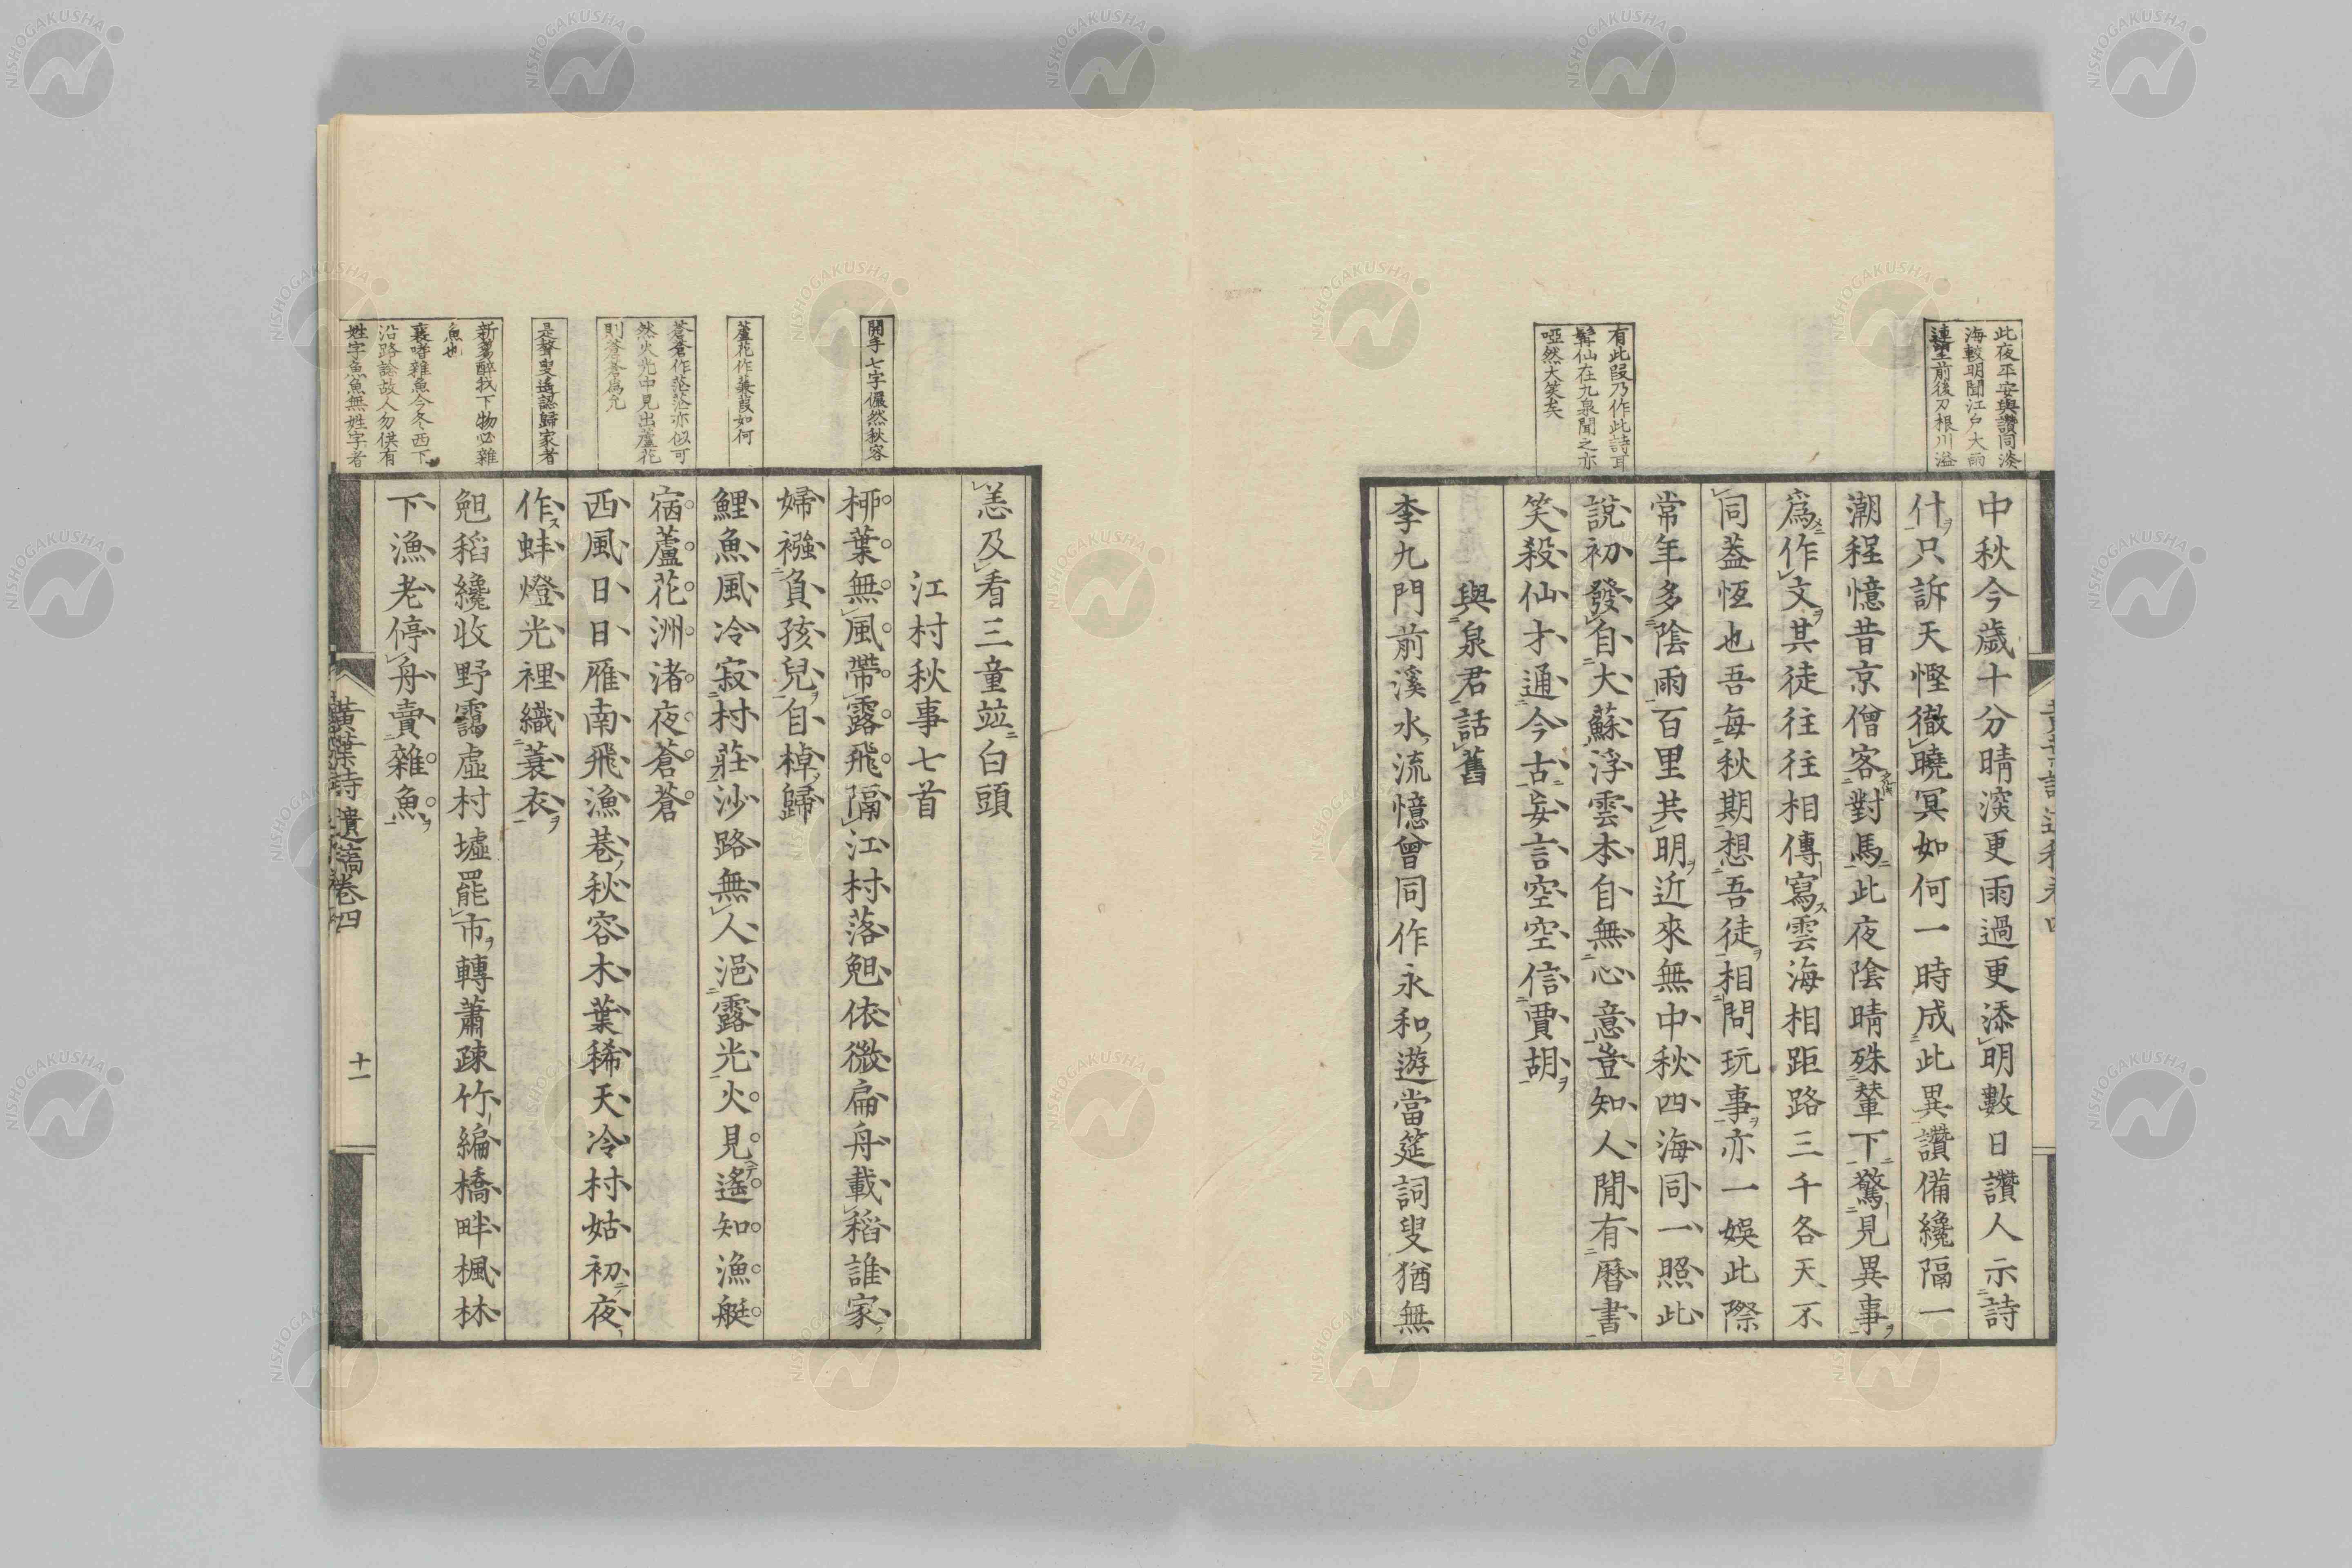 此夜平安與讚同漆
海較明聞江戶大雨
連塋前後刀根川溢
中秋今歳十分晴漆更雨過更添明數日讚人示詩
什只訴天慳徹曉冥如何一時成此異讚備纔隔一
潮程憶昔京僧客對馬此夜陰晴殊輦下驚見異事
爲作文其徒往往相傳寫雲海相距路三千各天不
同葢恆也吾每秋期想吾徒相問玩事亦一娛此際
有此段乃作此詩耳
髯仙在九泉聞之亦
啞然大笑矣
常年多陰雨百里共明近來無中秋四海同一照此
說初發自大蘇浮雲本自無心意豈知人閒有曆書
笑殺仙才通今古妄言空空信賈胡
與泉君話舊
李九門前溪水流憶曾同作永和遊當筵詞叟猶無
恙及看三童竝白頭
江村秋事七首
開手七字儼然秋容
桺葉無風帶露飛隔江村落䆉依微扁舟載稻誰家
婦襁負孩兒自棹歸
蘆花作蒹葭如何
鯉魚風冷寂村莊沙路無人浥露光火見遙知漁艇
蒼蒼作茫茫亦似可
然火光中見出蘆花
則蒼蒼爲允
宿蘆花洲渚夜蒼蒼
西風日日雁南飛漁巷秋容木葉稀天冷村姑初夜
是聲叟遙認歸家者
作蚌燈光裡織蓑衣
新篘醉我下物必雜
魚也
襄嗜雜魚今冬西下
沿路諗故人勿供有
姓字魚魚無姓字者
䆉稻纔收野靄虛村墟罷市轉蕭疎竹編橋畔楓林
下漁老停舟賣雜魚
黃葉詩遺稿卷四
十一
NISHOGAKUSHA